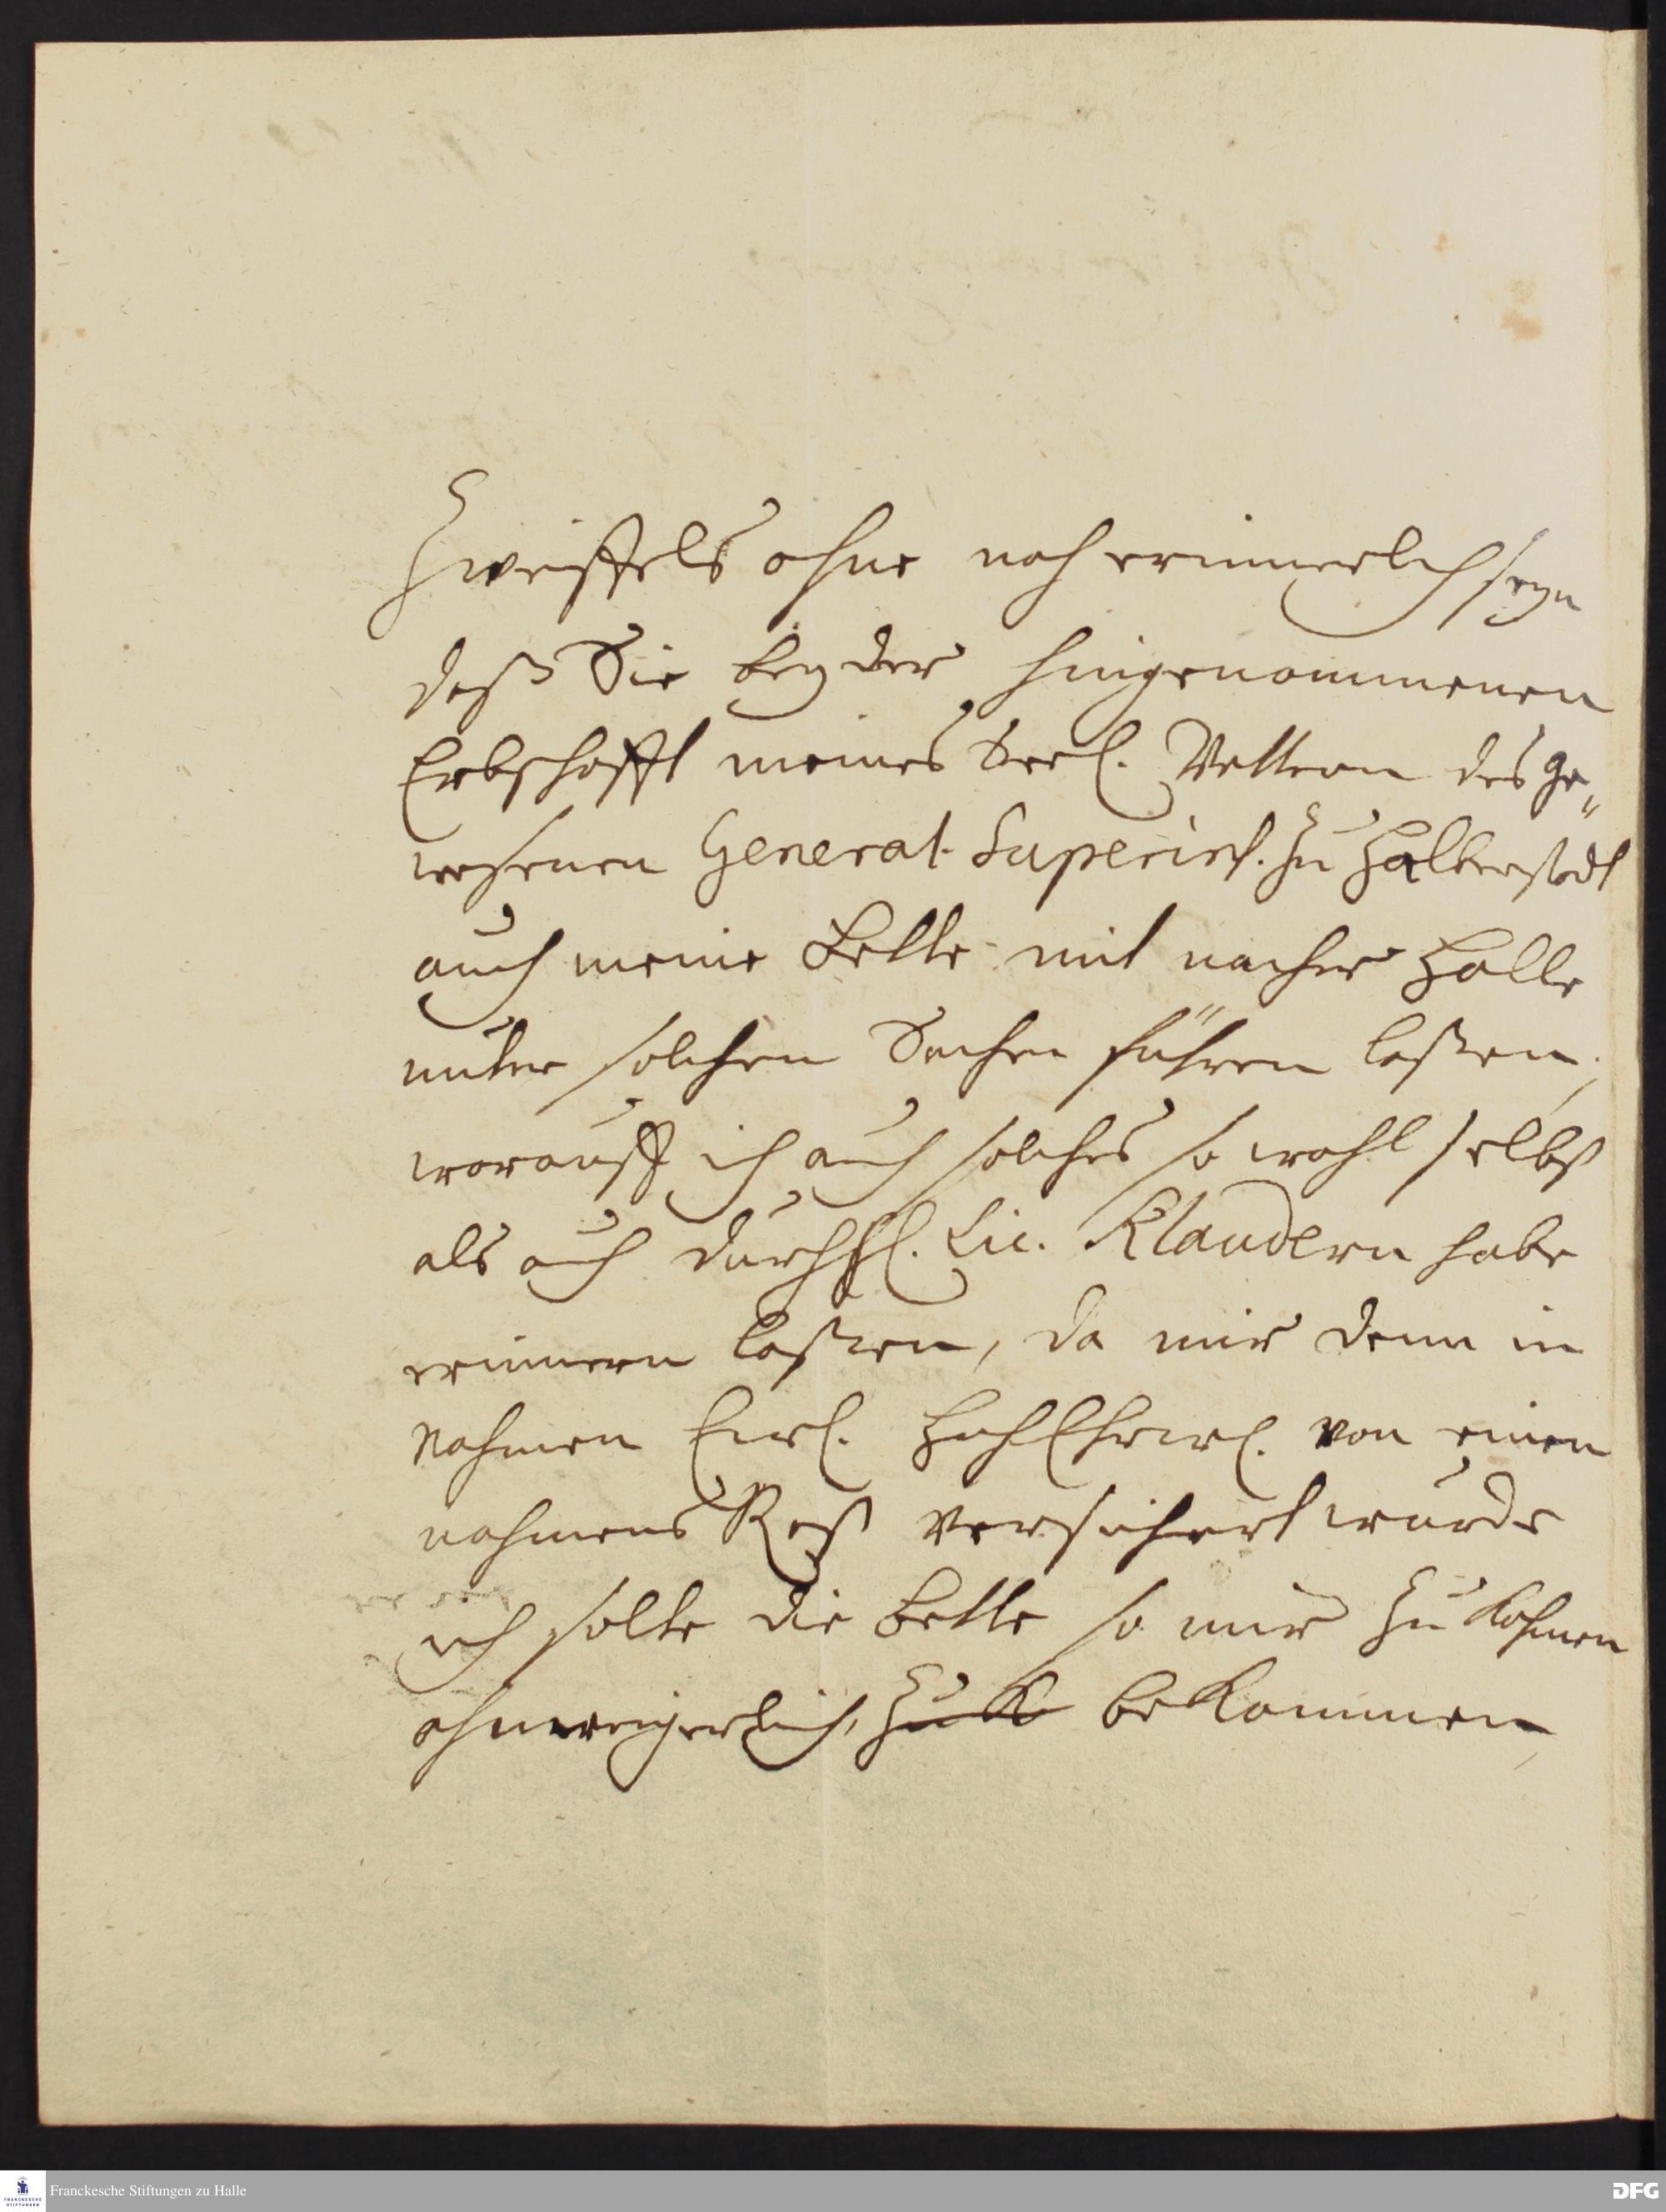 Zweiffels ohne noch erinnerlich seyn
daß Sie bey der hingenommenen
Erbschafft meines Seel. Vettern des ge„
wesenen General-Superint. zu Halberstadt
auch meine Bette mit nacher Halle
unter solchen Sachen führen laßen,
worauff ich auch solches so wohl selbst
als auch durch H. Lic. Klaudern habe
erinnern laßen, da mir denn in
Nahmen Ewl. HochEhrwl. von einen
nahmens Rost versichert wurde
ich solte die Bette so mir zu kohmen
ohnweigerlich, zu k bekommen,
Franckesche Stiftungen zu Halle
FRANCKESCHE STIFTUNGEN
DFG